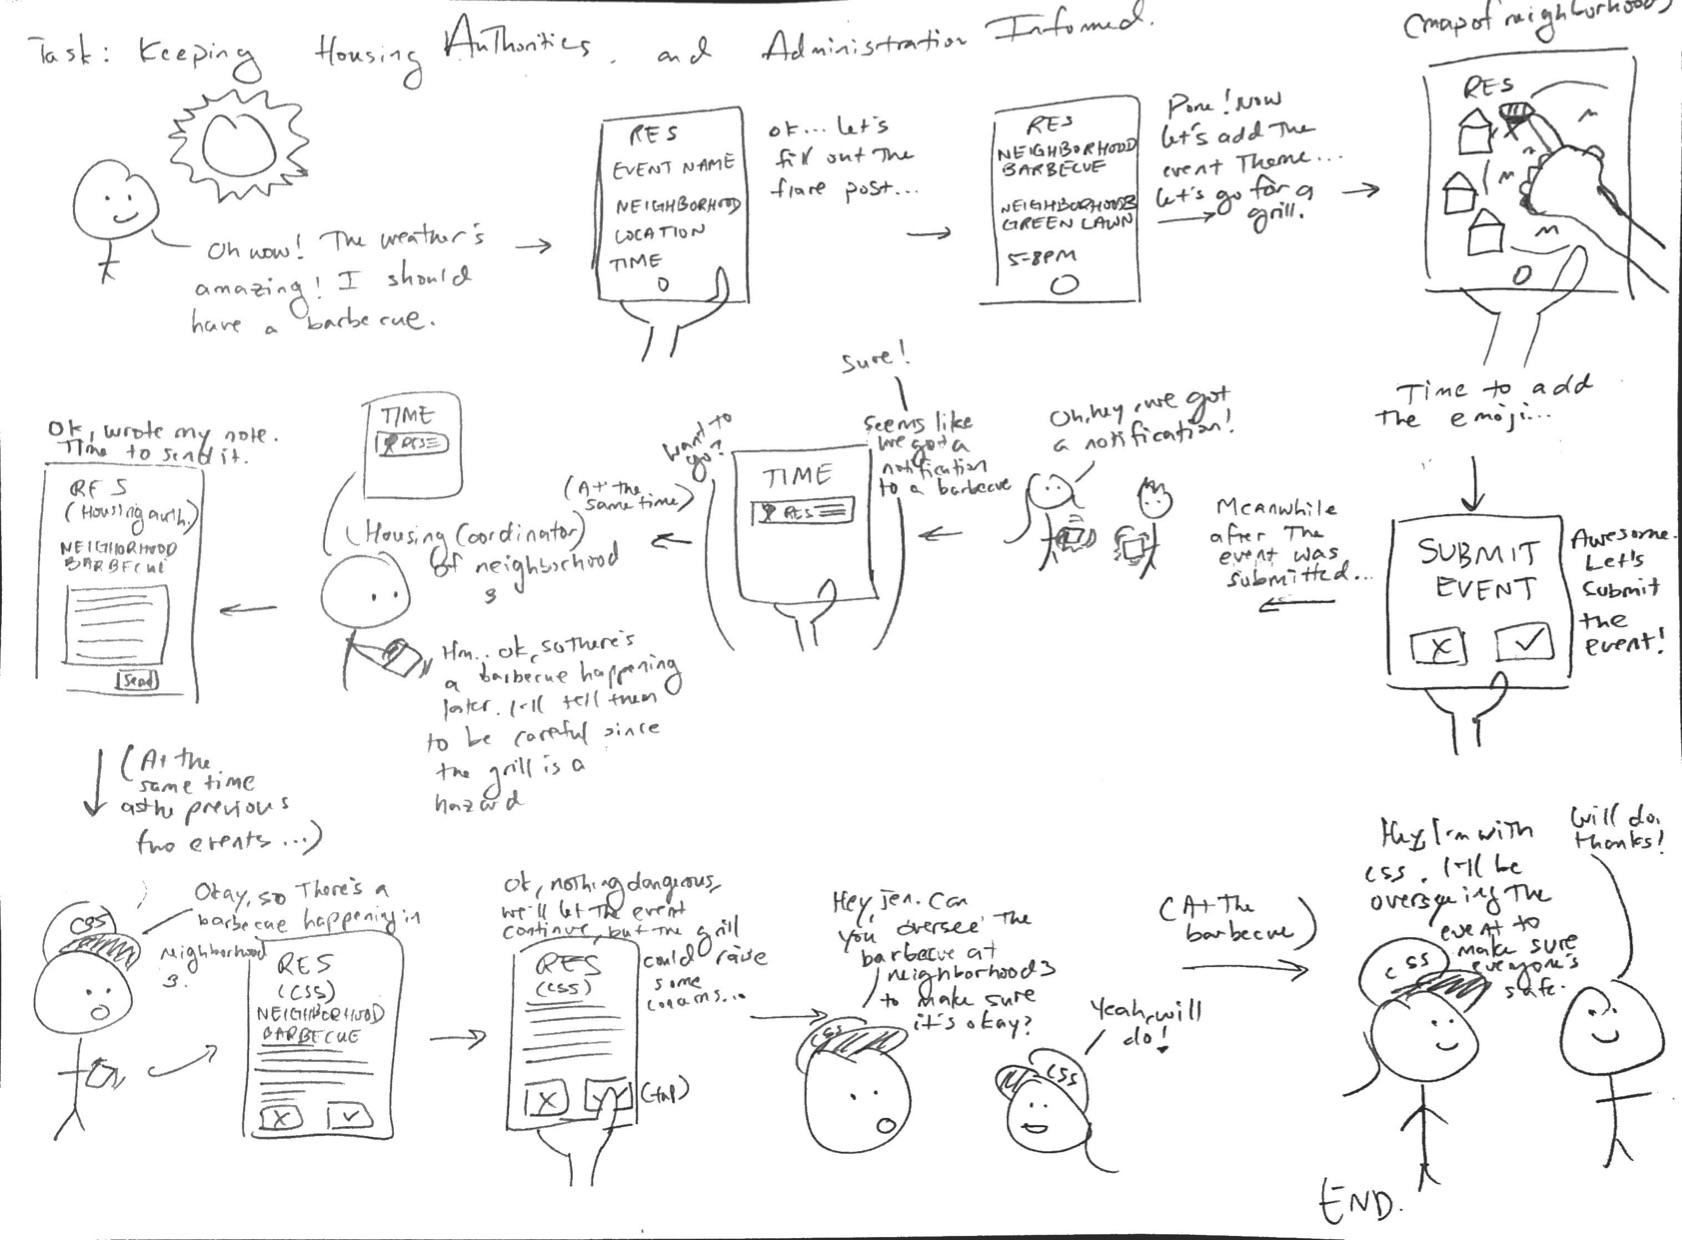 Task: Keeping Housing Authorities, and Administration Informed.
Oh wow! The weather's
amazing! I should
have a barbecue.
RES
EVENT NAME
NEIGHBORHOOD
LOCATION
TIME
ok... let's
fill out the
flare post...
RES
NEIGHBORHOOD
BARBECUE
NEIGHBORHOOD 3
GREEN LAWN
5-8PM
Done! Now
let's add the
event Theme...
let's go for a
grill.
(map of neighborhood)
RES
Time to add
the emoji...
SUBMIT
EVENT
X
Awesome.
Let's
submit
the
event!
Meanwhile
after the
event was
submitted...
Oh, hey, we got
a notification!
Sure!
Seems like
we got a
notification
to a barbecue
Want to
go?
TIME
RES
(At the
same time)
TIME
RES
(Housing Coordinator)
of neighborhood
3
Hm.. ok, so there's
a barbecue happening
later. I'll tell them
to be careful since
the grill is a
hazard
Ok, wrote my note.
Time to send it.
RES
(Housing auth.)
NEIGHBORHOOD
BARBECUE
Send
(At the
same time
as the previous
two events...)
CSS
Okay, so There's a
barbecue happening in
neighborhood
3.
RES
(CSS)
NEIGHBORHOOD
BARBECUE
X
Ok, nothing dangerous,
we'll let the event
continue, but the grill
could raise
some
concerns...
RES
(CSS)
X
(tap)
Hey Jen. Can
you oversee the
barbecue at
neighborhood 3
to make sure
it's okay?
CSS
Yeah, will
do!
CSS
(At the
barbecue)
Hey, I'm with
CSS. I'll be
overseeing the
event to
make sure
everyone's
safe.
CSS
Will do,
thanks!
END.